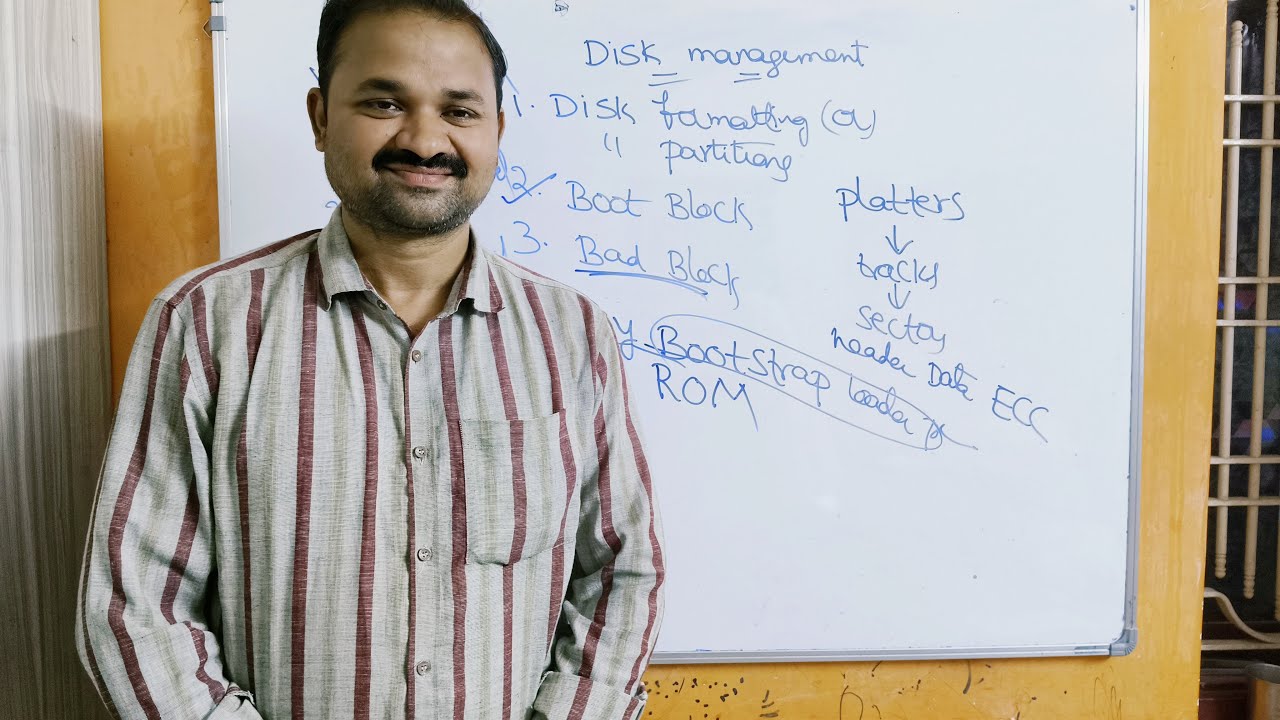 Disk management
1. Disk formatting (or)
" partitions
2. Boot Block
3. Bad Block
platters
↓
tracks
↓
sector
header Data ECC
Bootstrap loader
ROM